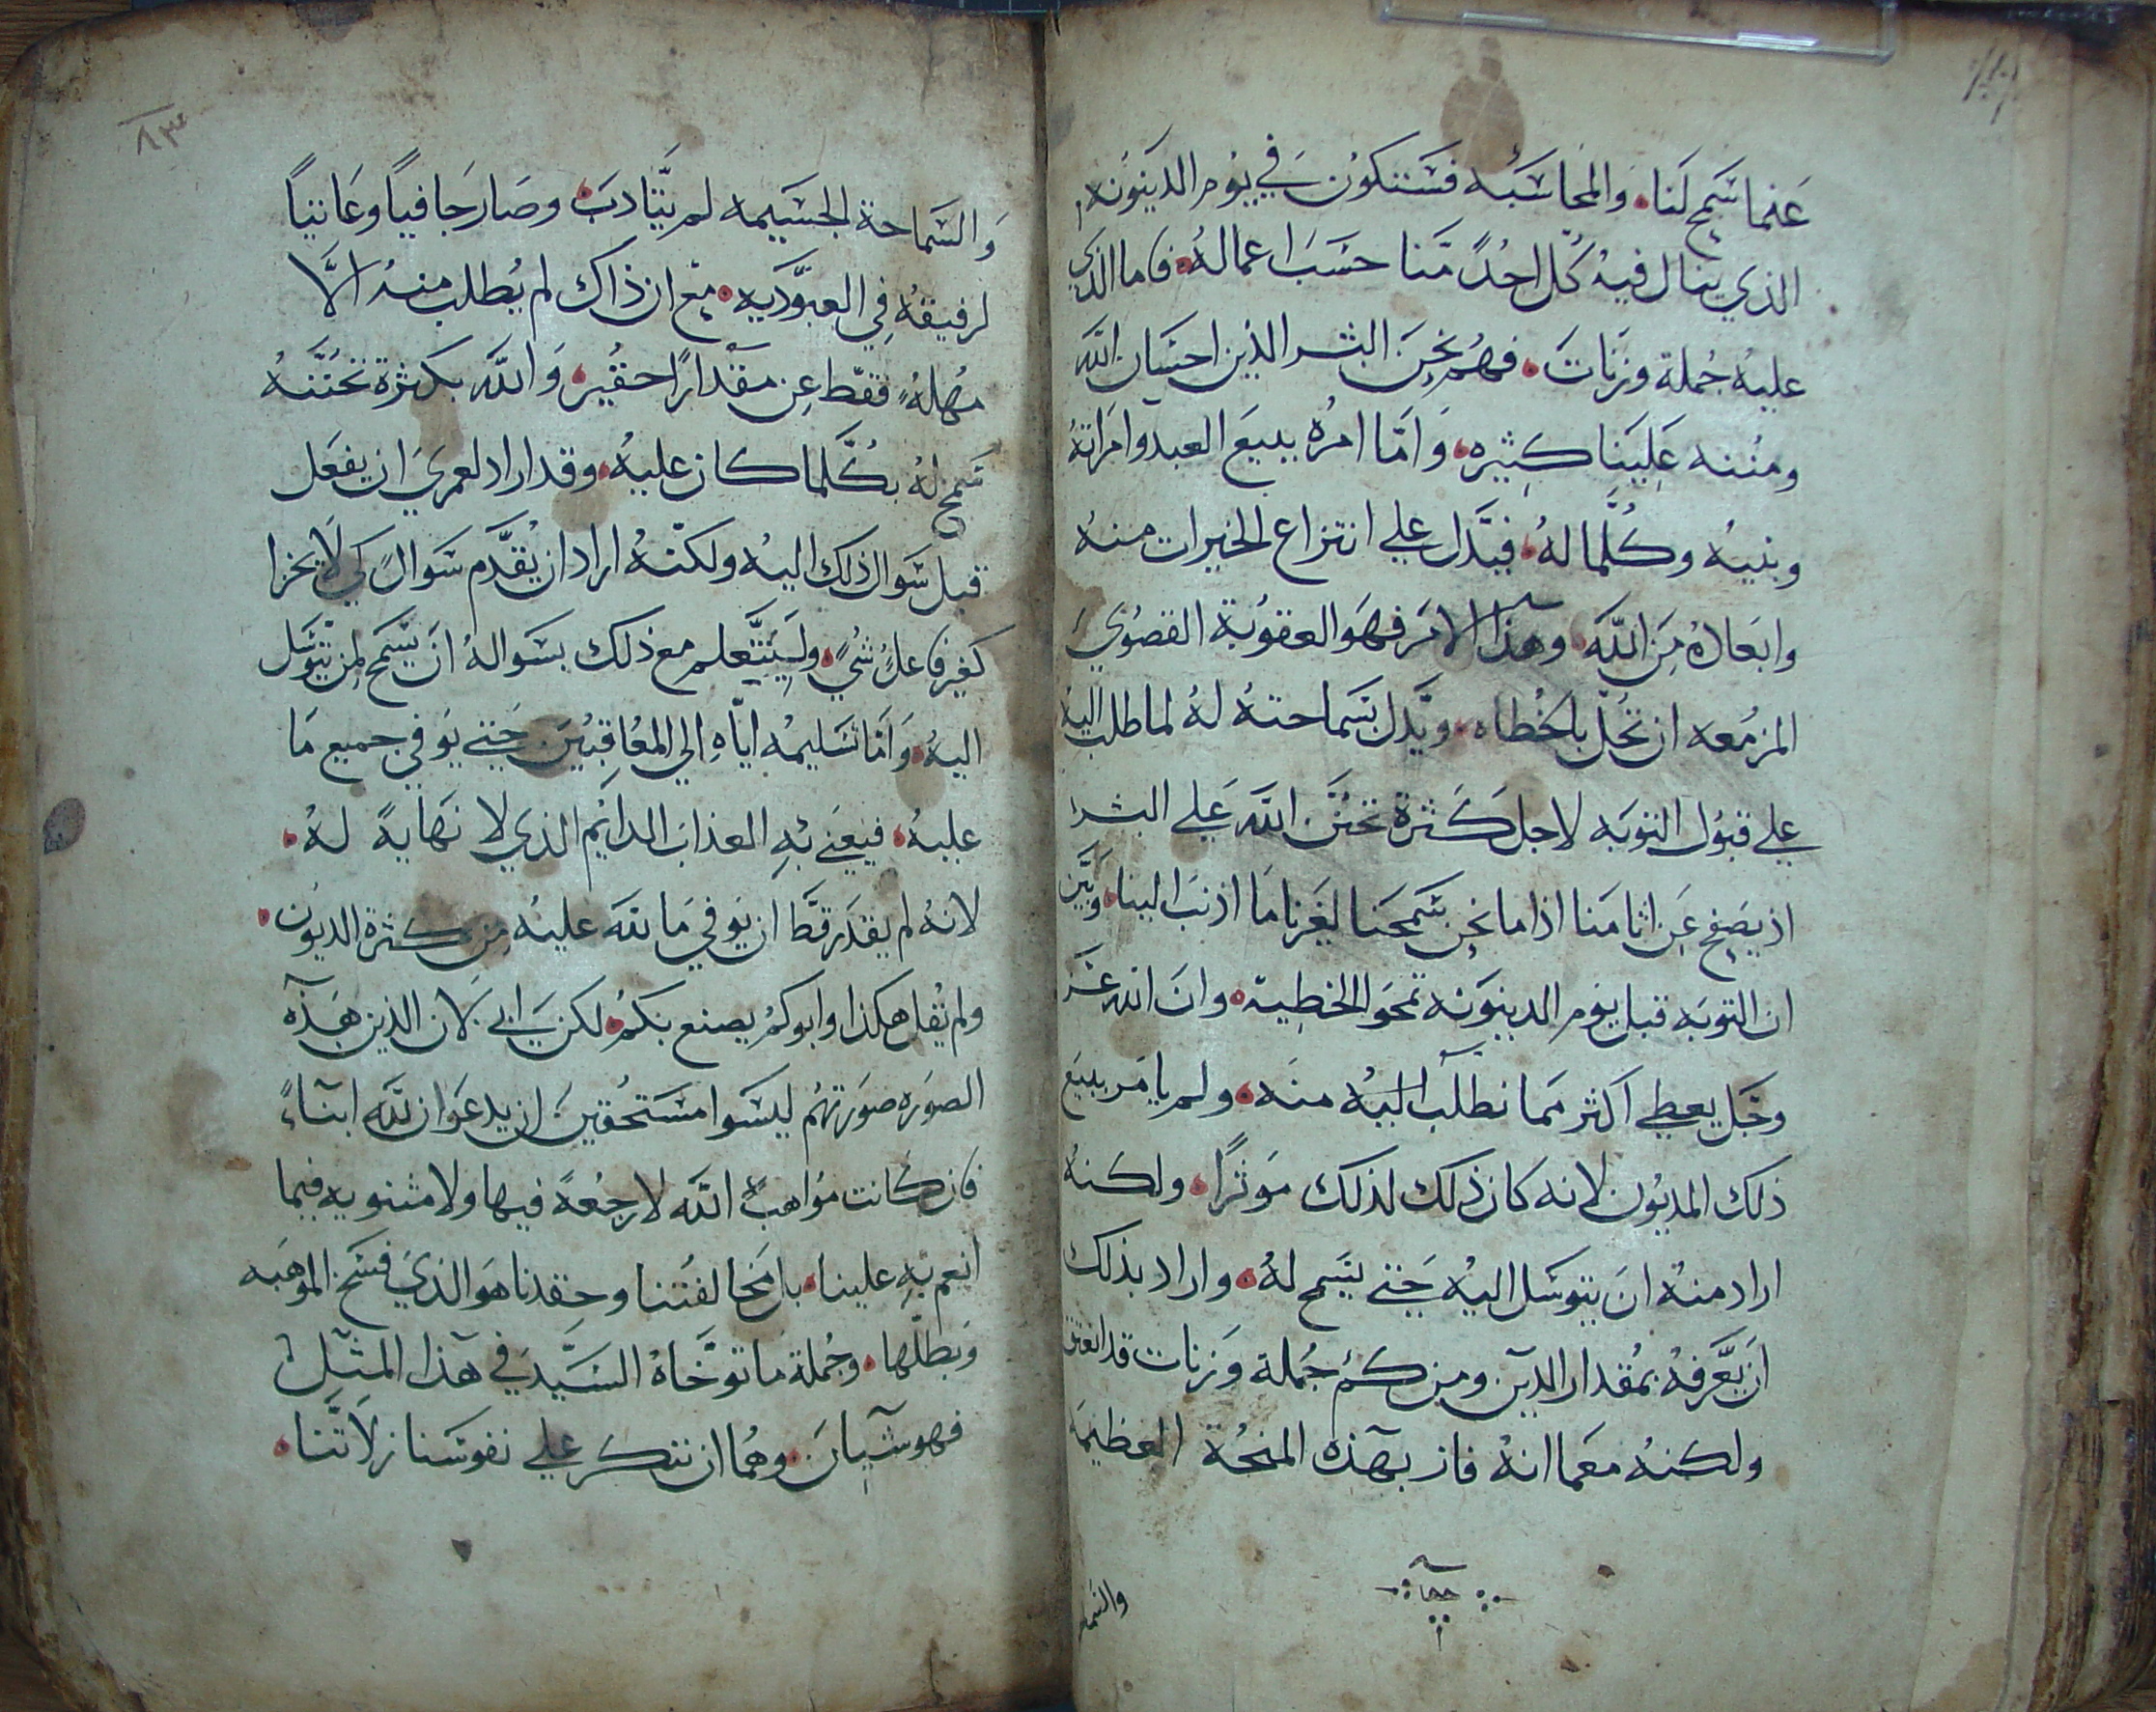 عنما سمح لنا، والمحاسبه فستكون في يوم الدينونه
الذي ينال فيه كل احد منا حسب اعماله، فاما الذي
عليه جملة وزنات، فهم نحن البشر الذين احسان الله
ومننه علينا كثيره، واما امره ببيع العبد وامراته
وبنيه وكلما له، فيدل علي انتزاع الخيرات منه
وابعاده من الله، وهذا الامر فهو العقوبة القصوي
المزمعه ان تحل بالخطاه، ويدل بسماحته له لما طلب اليه
علي قبول التوبه لاجل كثرة تحنن الله علي البشر
اذ يصفح عن اثامنا اذا ما نحن سمحنا لغيرنا ما اذنب الينا، وبين
ان التوبه قبل يوم الدينونه تمحو الخطية، وان الله عز
وجل يعطي اكثر مما نطلب اليه منه، ولم يامر ببيع
ذلك المديون لانه كان ذلك لذلك موثرا، ولكنه
اراد منه ان يتوسل اليه حتي يسمح له، واراد بذلك
ان يعرفه بمقدار الدين ومن كم جملة وزنات قد انعتق
ولكنه معما انه فاز بهذه المنحة العظيمه
والسماحه
٨٣
والسماحة الجسيمه لم يتادب، وصار جافيا وعاتيا
لرفيقه في العبوديه، مع ان ذاك لم يطلب منه الا
مهله فقط عن مقدارا حقير، والله بكثرة تحننه
سمح له بكلما كان عليه، وقد اراد لعمري ان يفعل
قبل سوال ذلك اليه ولكنه اراد ان يقدم سوال كي لا يخزا
كغير فاعل شي، وليتعلم مع ذلك بسواله ان يسمح لمن يتوسل
اليه، واما تسليمه اياه الي المعاقبين حتي يوفي جميع ما
عليه، فيعني به العذاب الدايم الذي لا نهاية له،
لانه لم يقدر قط ان يوفي ما لله عليه من كثرة الديون،
ولم يقل هكذا وابوكم يصنع بكم، لكن ابي لان الذين هذه
الصوره صورتهم ليسوا مستحقين ان يدعوا لله ابناء،
فان كانت مواهب الله لا رجعة فيها ولا مثنويه فيما
انعم به علينا، بل مخالفتنا وحقدنا هو الذي فسخ الموهبه
وبطلها، وجملة ما توخاه السيد في هذا المثل
فهو شيان، وهما ان نتذكر علي نفوسنا زلاتنا،